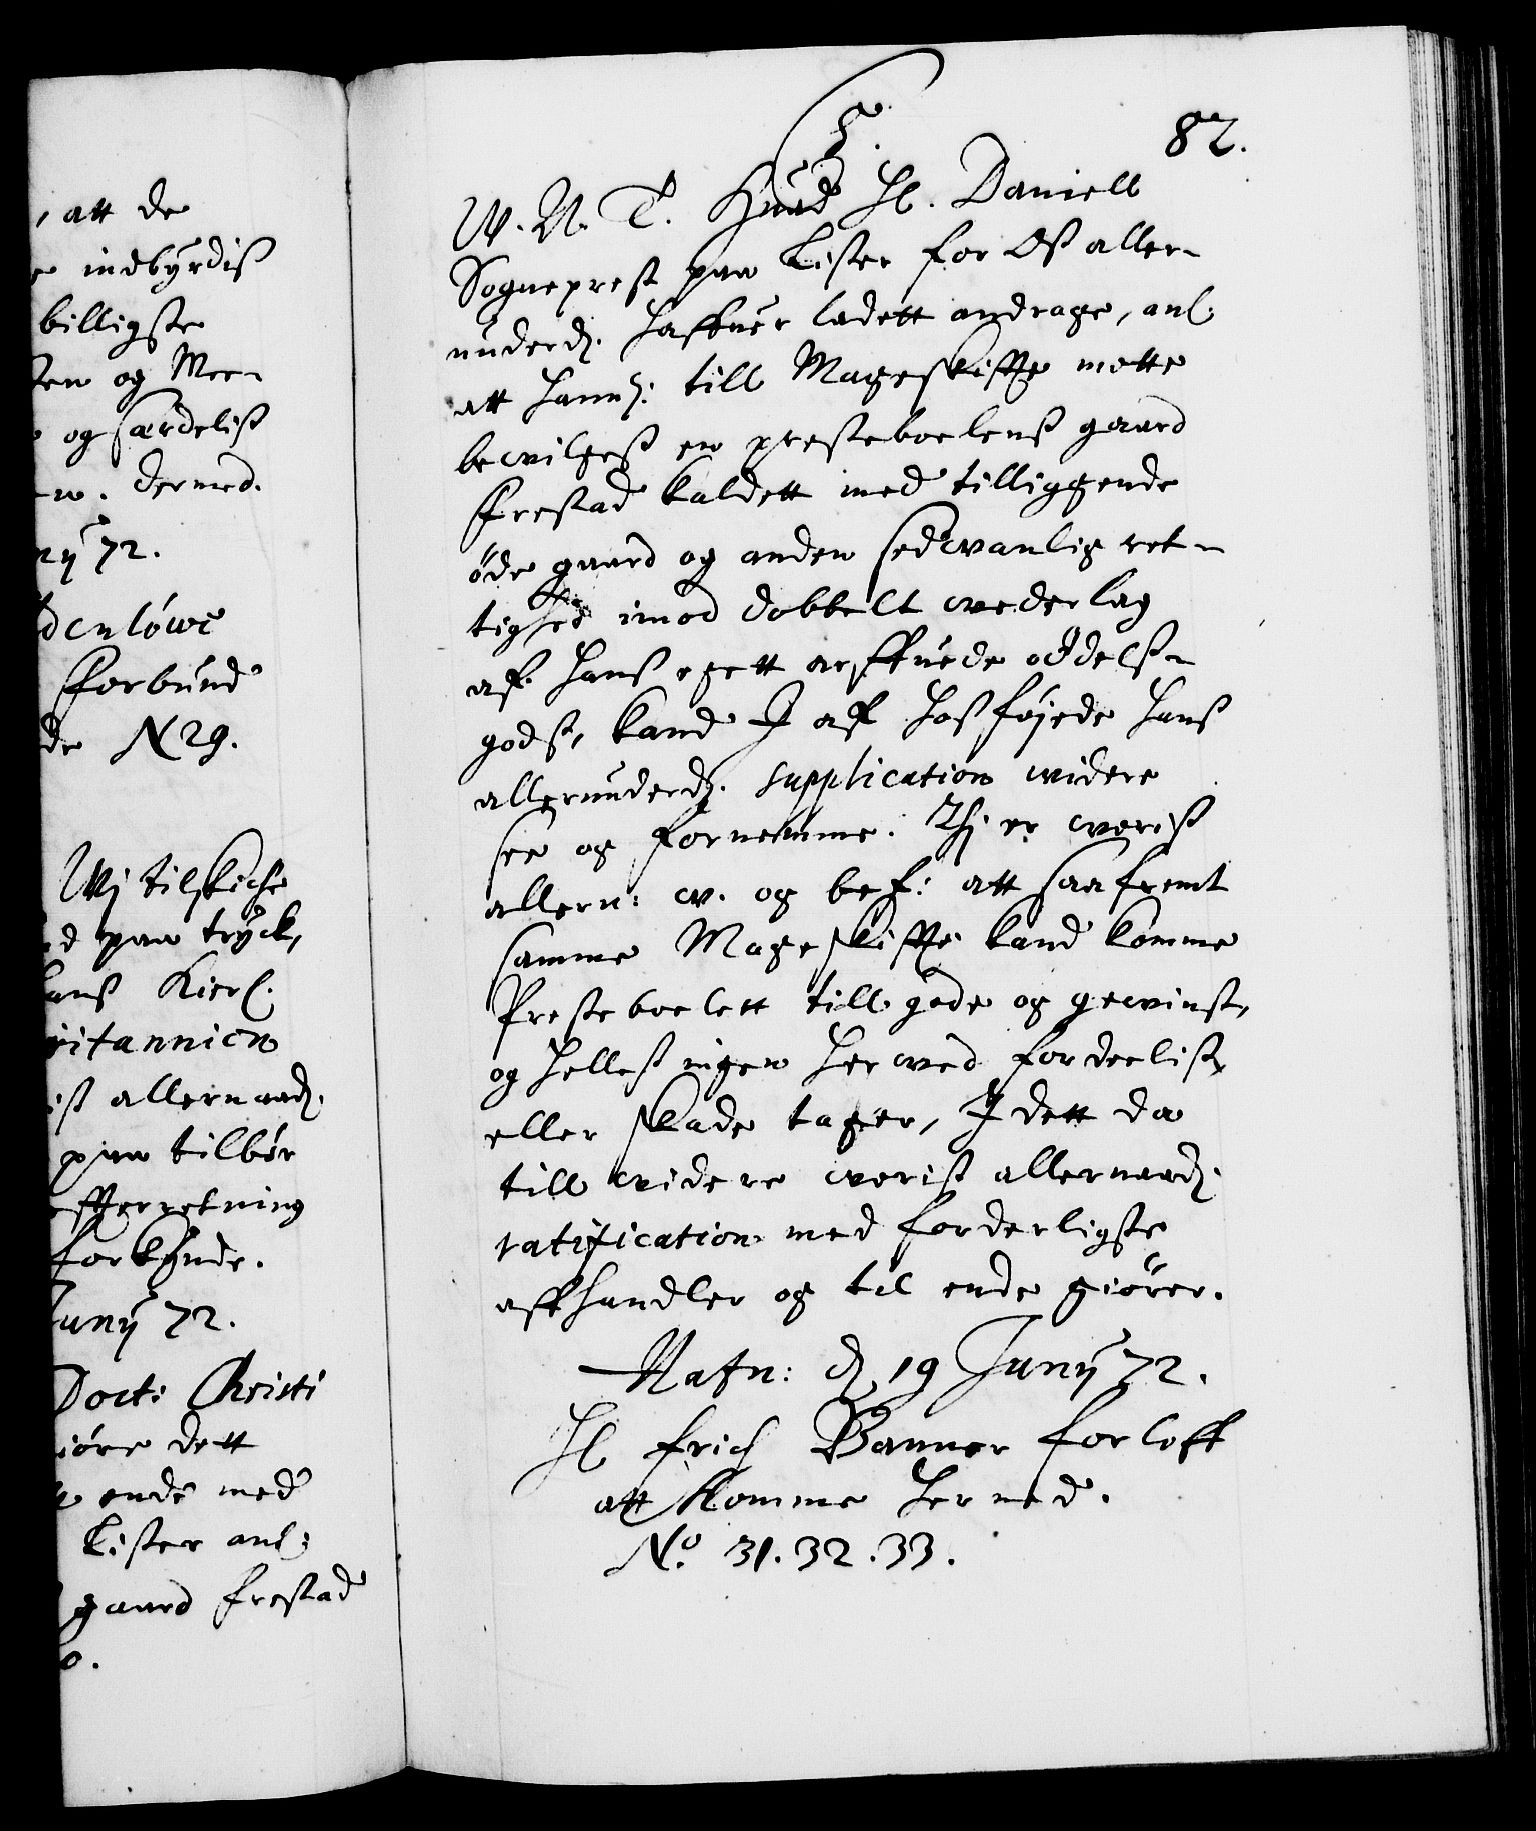 , att de
e indbyrdiß
billigste
ten og Mee-
og særdeliß
n. dermed.
ny 72.
denlöwe
forbund
de N 29.
Wj tilskiche
d paa tryck,
hans Kierl.
ritannien
ist allernaad.
paa tilbör
effterretning
forkynde.
Juny 72.
Doct: Christi
iöre dett
ende med
Lister anl:
gaard Frestad
o.
82.
W. N. T. Knud Hl. Daniell
Sogneprest paa Lister for Oß aller-
underd. haffuer ladett andrage, anl.
att hann: till Mageskiffte motte
bewilgeß en presteboelens gaard
Frestad kaldett med tilliggende
öde gaard og anden sedwanlig ret-
tighed imod dobbelt wederlag
aff hanß egett arffuede oddelß-
godß, kand I aff hoßföjede hanß
allerunderd. supplication widere
see og fornemme. Thj er woriß
allern: w. og bef: att saafremt
samme Mageskiffte kand komme
Presteboelett till gode og gewinst,
og hellest ingen herwed fordeelis
eller skade tager, I dett da
till widere woriß allernaad.
ratification med forderligste
affhandler og til ende giörer.
Hafn: d. 19 Juny 72.
Hl Erich Banner forloff
att komme hermed.
No. 31. 32. 33.